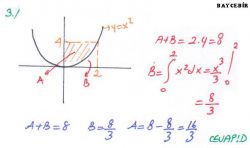 BAYCEBİR
3./
y=x²
4
2
A
B
A+B = 2.4 = 8
B = ∫₀² x²dx = x³/3 |₀²
= 8/3
A+B = 8   B = 8/3   A = 8 - 8/3 = 16/3
CEVAP: D